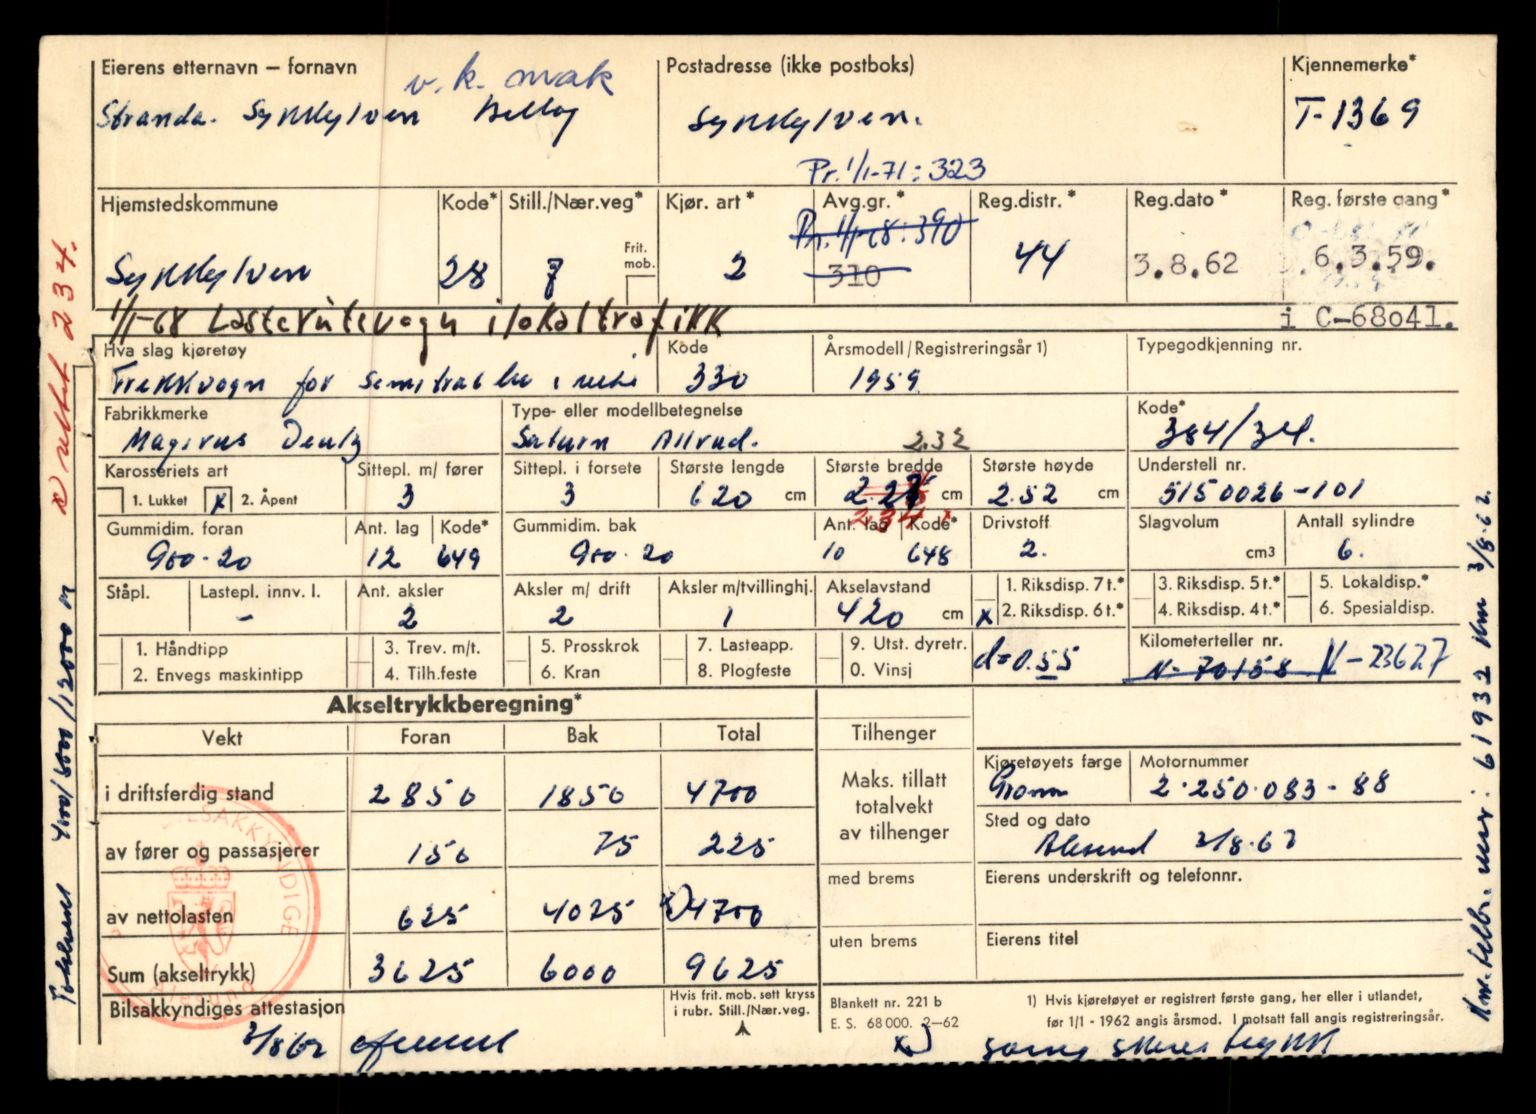 Eierens etternavn – fornavn
v.k. mrak
Postadresse (ikke postboks)
Kjennemerke*
Stranda - Sykkylven Billag
Sykkylven.
T-1369
Pr. 1/1-71: 323
Hjemstedskommune Kode* Still./Nær.veg* Kjør. art* Avg.gr.* Reg.distr.* Reg.dato* Reg. første gang*
Pr. 1/1-68: 390
Frit. mob.
Sykkylven 28 7 2 310 44 3.8.62 6.3.59.
1/1-68 Lasterutevogn i lokaltrafikk
i C-68041.
Hva slag kjøretøy Kode Årsmodell/Registreringsår 1) Typegodkjenning nr.
Trekkvogn for semitrailer i rute 330 1959
Fabrikkmerke Type- eller modellbetegnelse Kode*
Magirus Deutz Saturn Allrad. 384/34.
2.32
Karosseriets art Sittepl. m/ fører Sittepl. i forsete Største lengde Største bredde Største høyde Understell nr.
1. Lukket x 2. Åpent 3 3 620 cm 2.27 cm 2.52 cm 5150026-101
2.34 x
Gummidim. foran Ant. lag Kode* Gummidim. bak Ant. lag Kode* Drivstoff Slagvolum Antall sylindre
900-20 12 649 900-20 10 648 2. cm3 6.
Ståpl. Lastepl. innv. l. Ant. aksler Aksler m/ drift Aksler m/tvillinghj. Akselavstand
- 2 2 1 420 cm
1. Riksdisp. 7 t.* 3. Riksdisp. 5 t.* 5. Lokaldisp.*
x 2. Riksdisp. 6 t.* 4. Riksdisp. 4 t.* 6. Spesialdisp.
1. Håndtipp 3. Trev. m/t. 5. Prosskrok 7. Lasteapp. 9. Utst. dyretr.
2. Envegs maskintipp 4. Tilh.feste 6. Kran 8. Plogfeste 0. Vinsj
d=0.55
Kilometerteller nr.
N-70158 N-23627
Akseltrykkberegning*
Vekt Foran Bak Total
i driftsferdig stand 2850 1850 4700
av fører og passasjerer 150 75 225
av nettolasten 625 4025 x) 4700
Sum (akseltrykk) 3625 6000 9625
Tilhenger
Maks. tillatt
totalvekt
av tilhenger
med brems
uten brems
Kjøretøyets farge Motornummer
Grønn 2.250.083-88
Sted og dato
Ålesund 3/8-62
Eierens underskrift og telefonnr.
Eierens titel
Bilsakkyndiges attestasjon
3/8 62
Hvis frit. mob. sett kryss
i rubr. Still./Nær.veg.
Blankett nr. 221 b
E. S. 68 000. 2–62
1) Hvis kjøretøyet er registrert første gang, her eller i utlandet,
før 1/1 - 1962 angis årsmodell. I motsatt fall angis registreringsår.
x)
BILSAKKYNDIGE
x) rettet 234.
4000/8000/12000 m
61932 km 3/8-62.